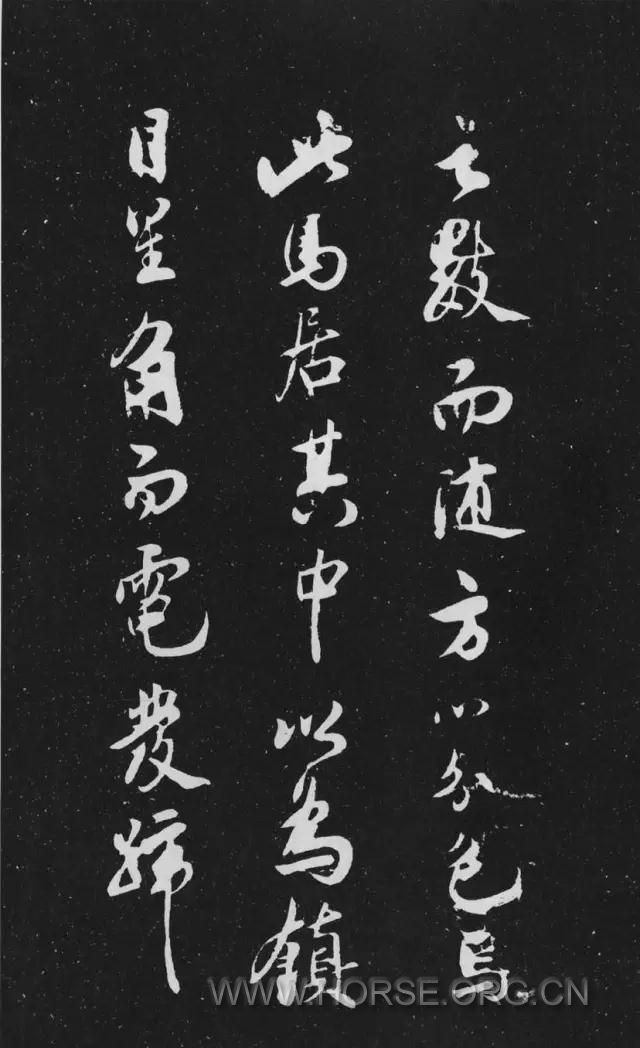 之數而隨方以分色焉
此馬居其中以為鎮
目星角而電發蹄
WWW.HORSE.ORG.CN